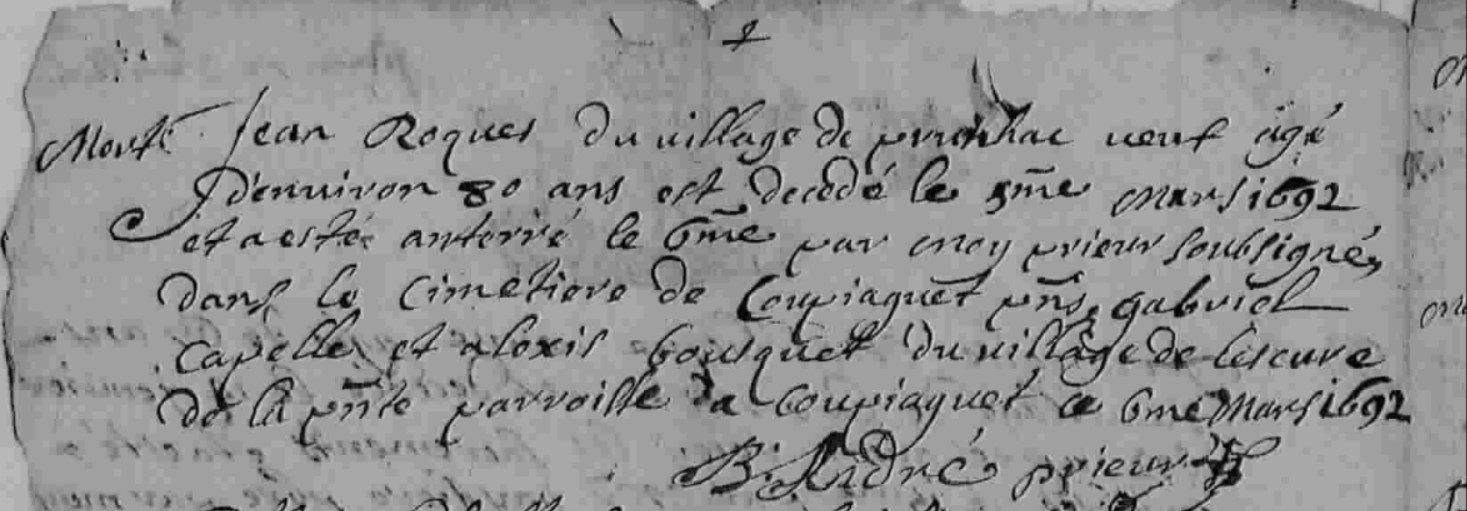 Morte Jean Roques du village de prunhac veuf agé
d'enuiron 80 ans est decedé le 5me mars 1692
et a esté anterré le 6me par moy prieur soubsigné,
dans le cimetiere de Coupiaguet pns, gabriel
Capelle, et alexis bousquet du village de lescure
de la pnte parroisse a Coupiaguet ce 6me Mars 1692
B. André prieur